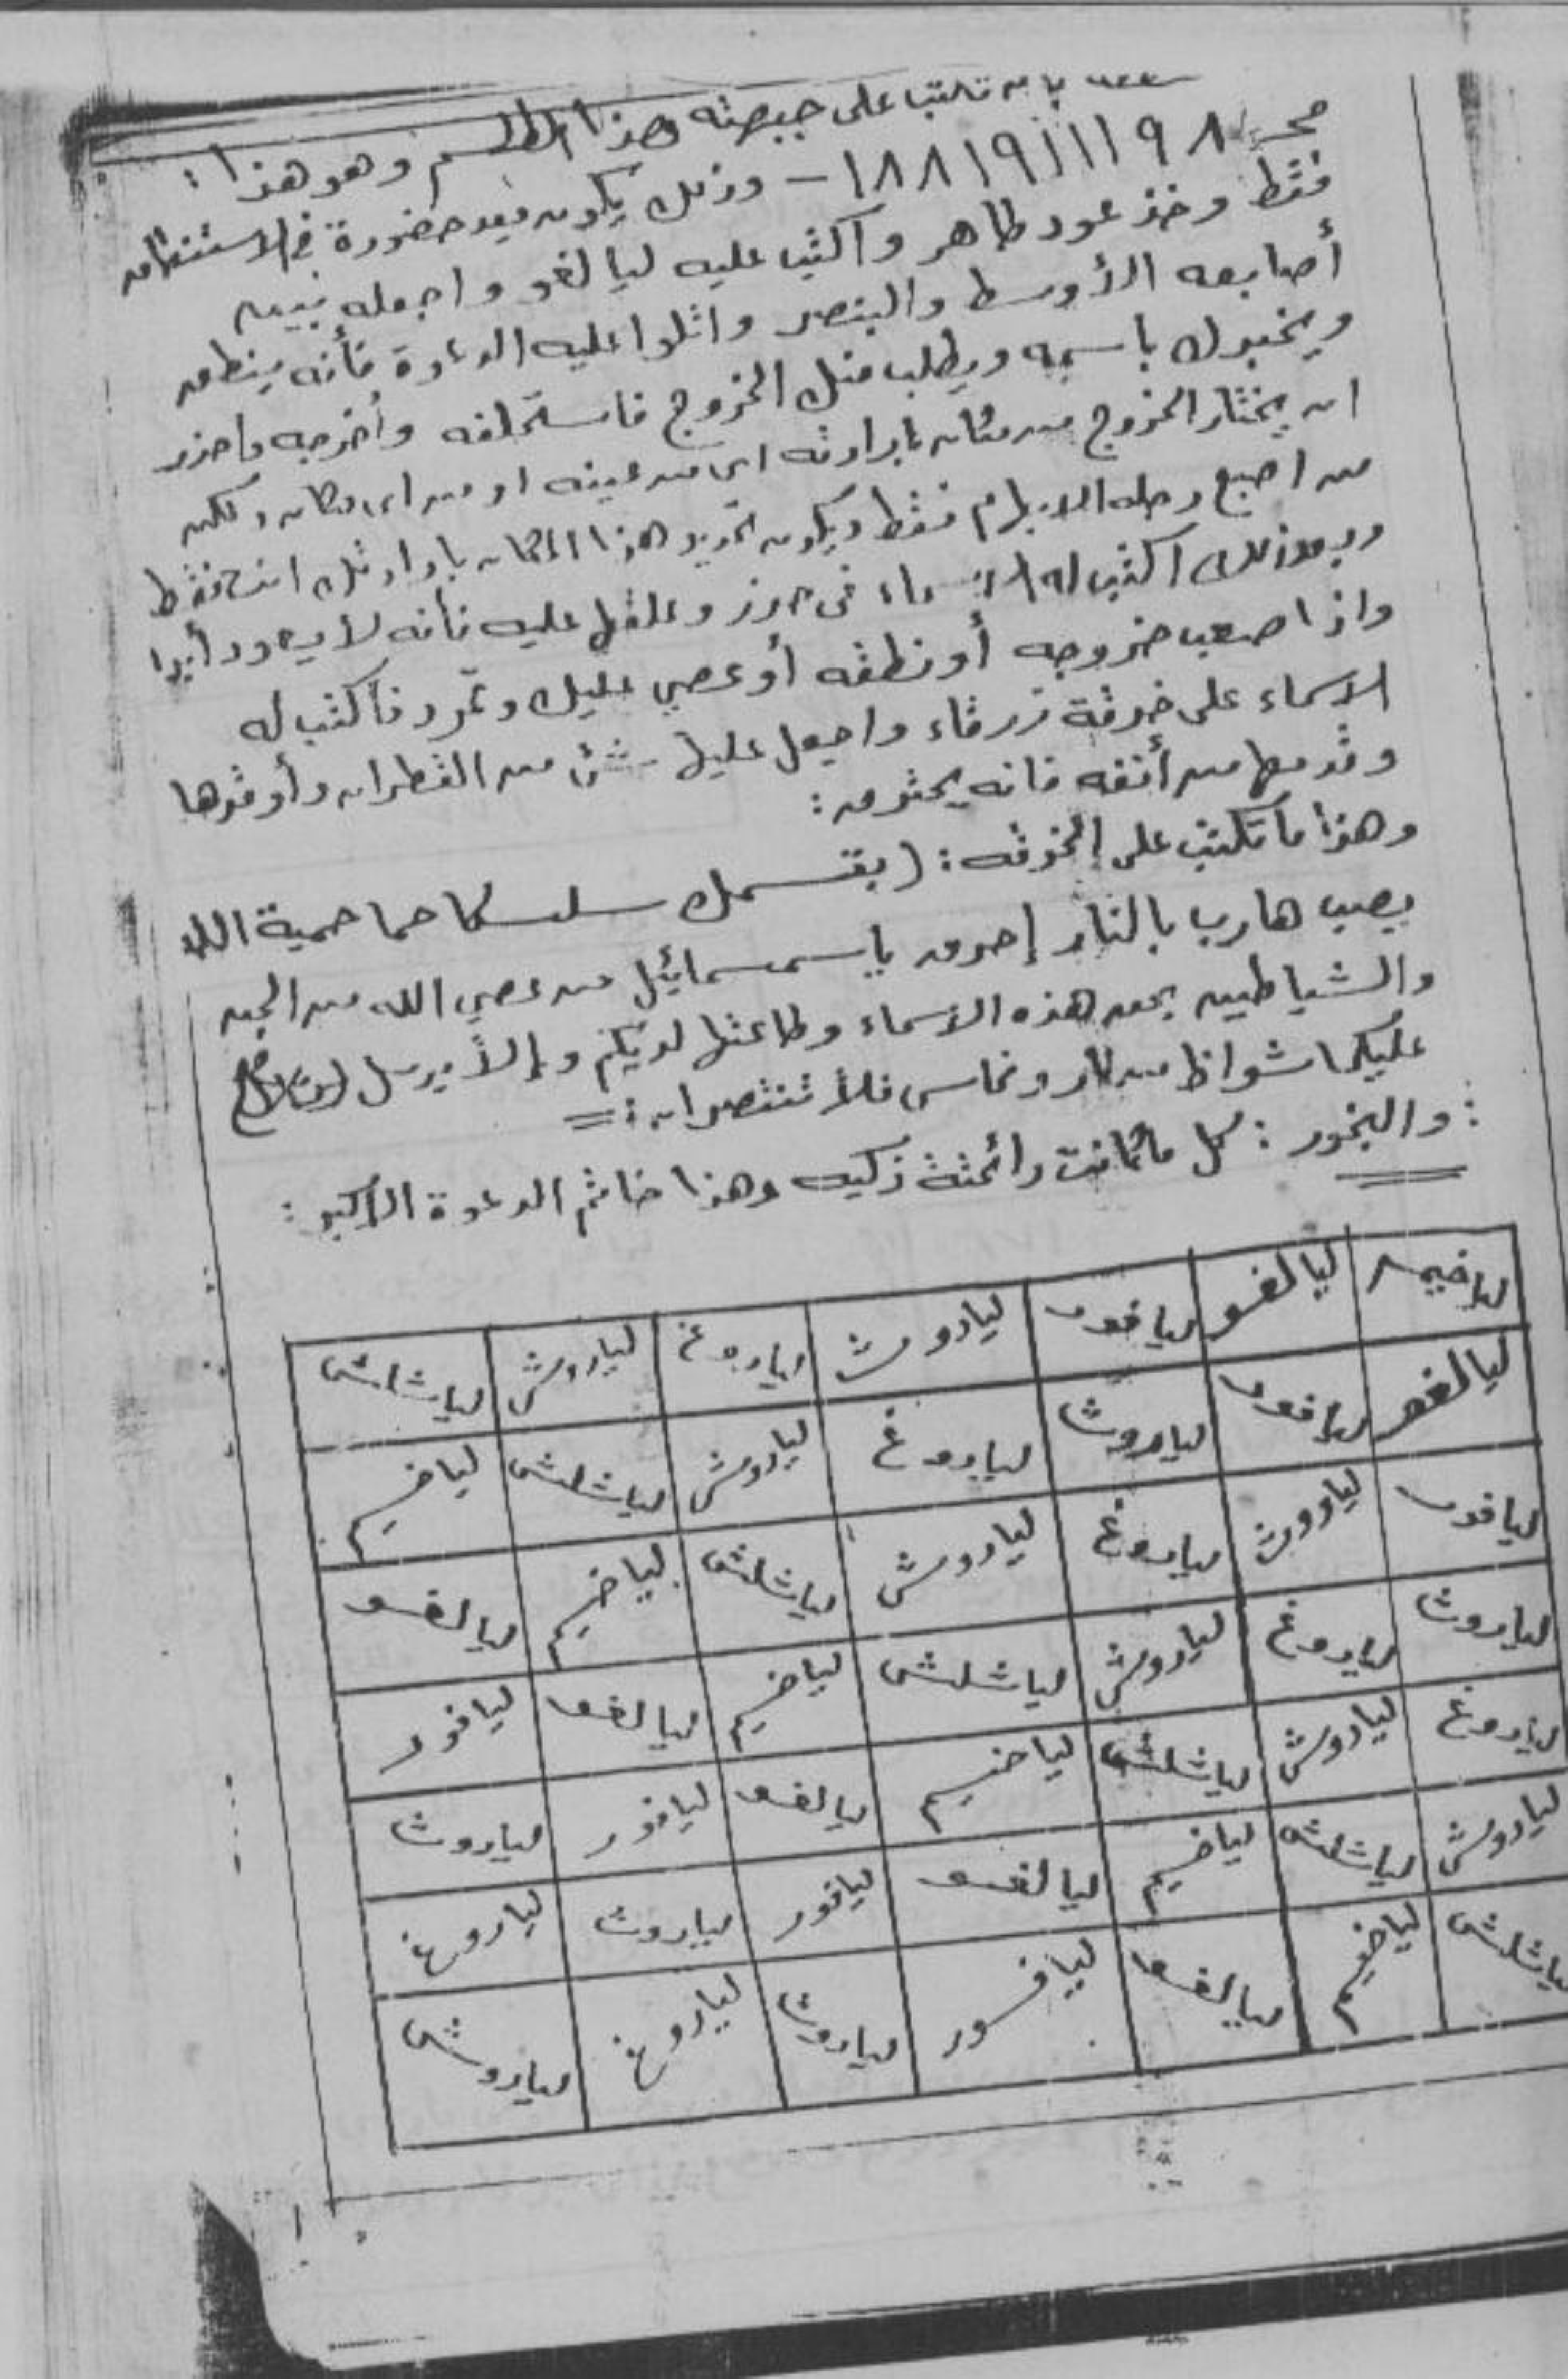 تكتب على جبهته هذا الطلسم وهو هذا :
١٨٨١٩١١١٩٨ – وذلك يكون بعد حضورة في الاستنطاق
فقط وخذ عود طاهر واكتب عليه ليالغو واجعله بين
أصابعه الأوسط والبنصر واتلوا عليه الدعوة فأنه ينطق
ويخبرك باسمه ويطلب منك الخروج فاستحلفه وأخرجه واحذر
ان يختار الخروج من مكان بارادته اى من عينه او من اى مكان ولكن
من اصبع رجله الابهام فقط ويكون تحديد هذا المكان بارادتك انت فقط
وبعد ذلك اكتب له الاسماء فى حرز وعلقها عليه فأنه لا يعاود أبدا
واذا صعب خروجه أو نطقه أو عصي عليك وتمرد فأكتب له
الاسماء على خرقة زرقاء واجعل عليها شئ من القطران وأوقدها
وقدمها من أنفه فانه يحترق :
وهذا ما تكتب على الخرقه : ( بقسمك سلسكا حما حمية الله
يصب هارب بالنار إحرق ياسمسمائيل من عصي الله من الجن
والشياطين بحق هذه الاسماء وطاعتها لديكم وإلا يرسل
عليكما شواظ من نار ونحاس فلا تنتصران : =
: والبخور : كل ما كانت رائحته زكيه وهذا خاتم الدعوة الاكبر :
لياخيم ليالغو ليافور لياروث لياروغ لياروش لياشلش
ليالغو ليافور لياروث لياروغ لياروش لياشلش لياخيم
ليافور لياروث لياروغ لياروش لياشلش لياخيم ليالغو
لياروث لياروغ لياروش لياشلش لياخيم ليالغو ليافور
لياروغ لياروش لياشلش لياخيم ليالغو ليافور لياروث
لياروش لياشلش لياخيم ليالغو ليافور لياروث لياروغ
لياشلش لياخيم ليالغو ليافور لياروث لياروغ لياروش